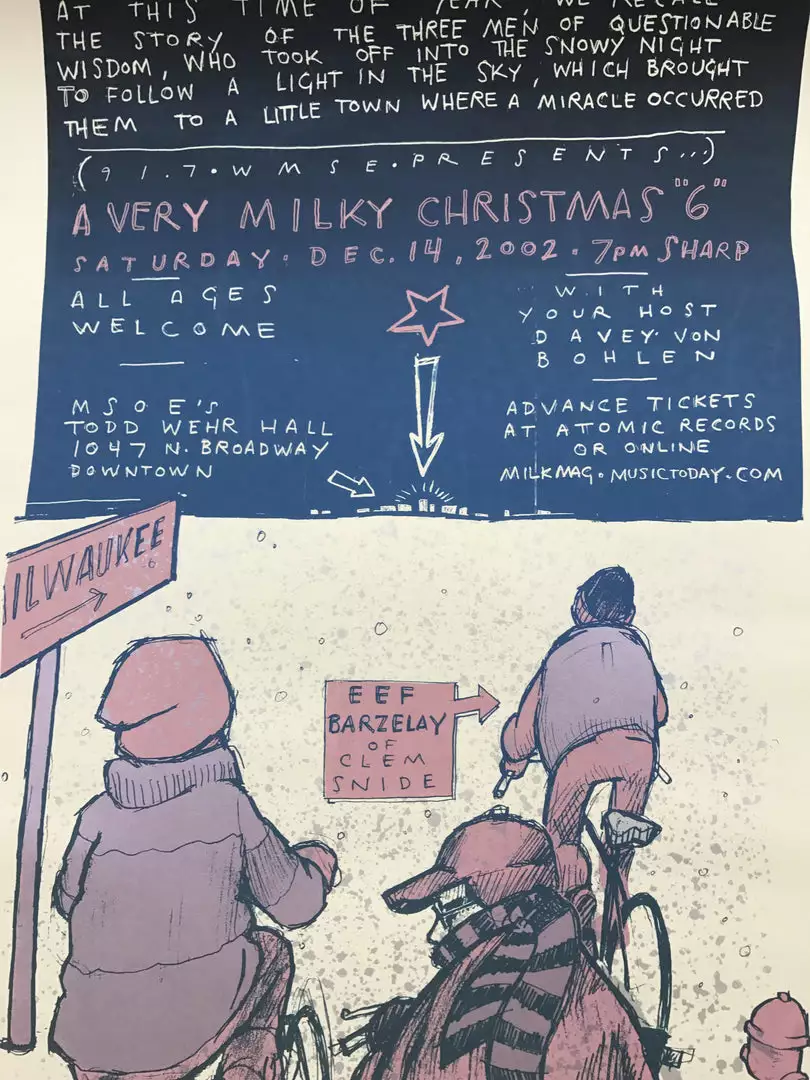 AT THIS TIME OF YEAR, WE RECALL
THE STORY OF THE THREE MEN OF QUESTIONABLE
WISDOM, WHO TOOK OFF INTO THE SNOWY NIGHT
TO FOLLOW A LIGHT IN THE SKY, WHICH BROUGHT
THEM TO A LITTLE TOWN WHERE A MIRACLE OCCURRED
(91.7•WMSE•PRESENTS...)
A VERY MILKY CHRISTMAS "6"
SATURDAY • DEC. 14, 2002 • 7PM SHARP
ALL AGES
WELCOME
WITH
YOUR HOST
DAVEY VON
BOHLEN
MSOE'S
TODD WEHR HALL
1047 N. BROADWAY
DOWNTOWN
ADVANCE TICKETS
AT ATOMIC RECORDS
OR ONLINE
MILKMAG.MUSICTODAY.COM
ILWAUKEE
EEF
BARZELAY
OF
CLEM
SNIDE